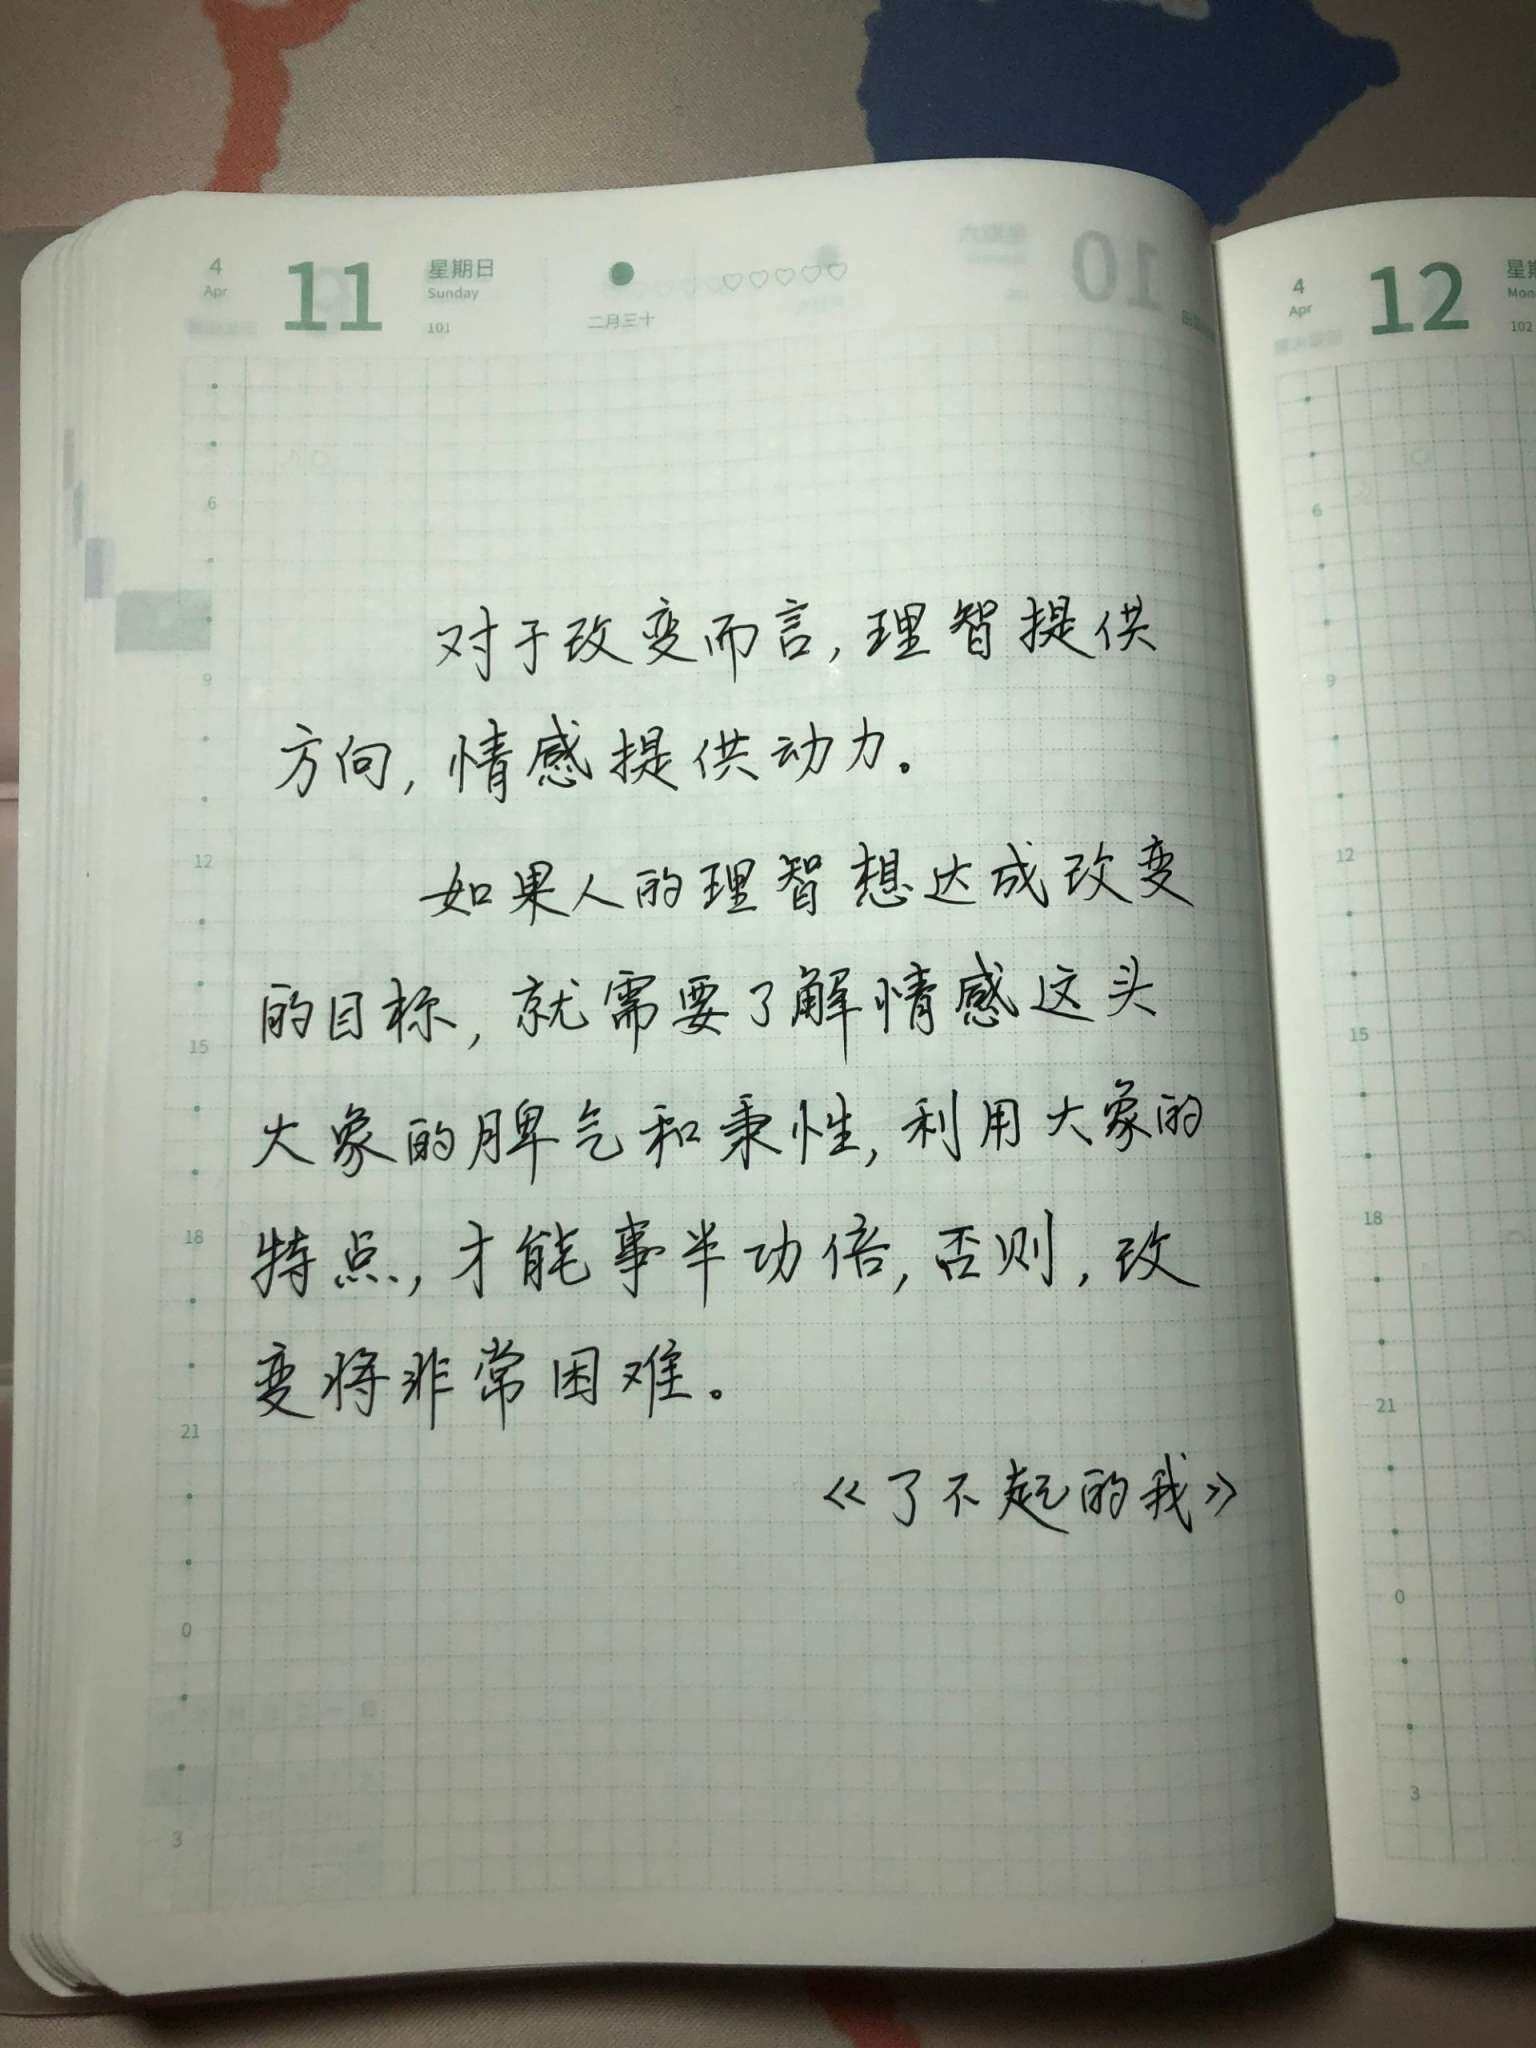 4 Apr 11 星期日 Sunday 101 二月三十
10
对于改变而言,理智提供
方向,情感提供动力。
如果人的理智想达成改变
的目标,就需要了解情感这头
大象的脾气和秉性,利用大象的
特点,才能事半功倍,否则,改
变将非常困难。
《了不起的我》
6
9
12
15
18
21
0
3
4 Apr 12 Mon 102
6
9
12
15
18
21
0
3